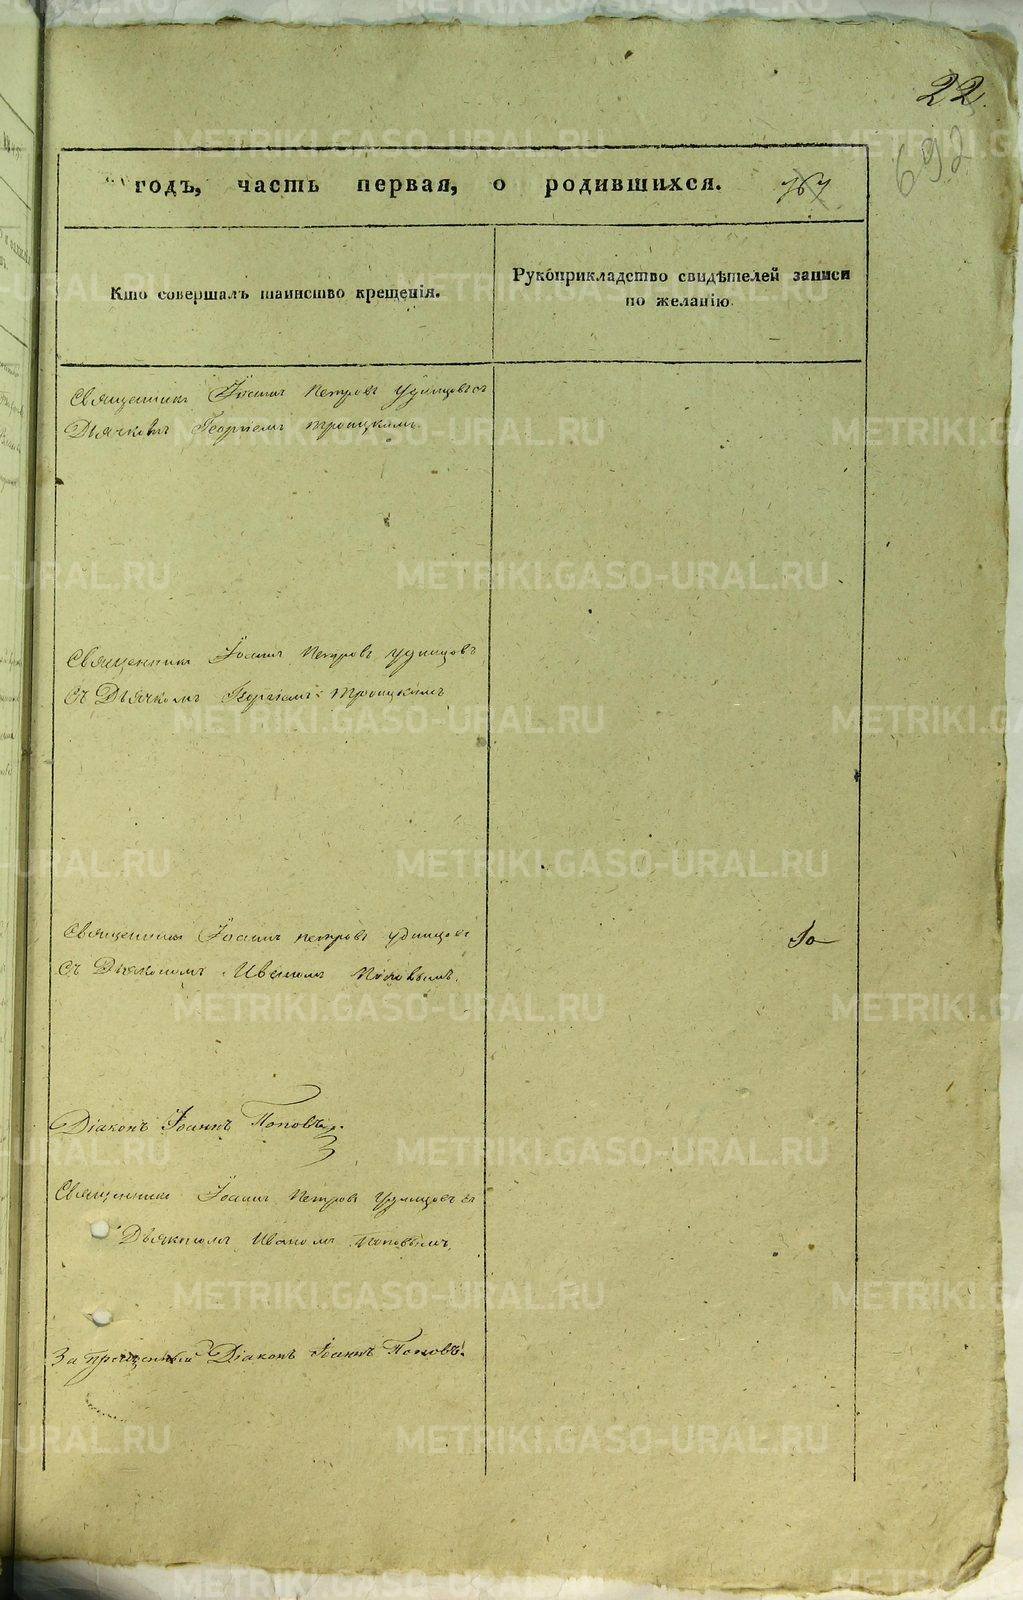 22.
692
годъ, часть первая, о родившихся. 767
Кто совершалъ таинство крещенія.
Рукоприкладство свидѣтелей записи
по желанію.
Священникъ Іоаннъ Петровъ Удинцовъ съ
Дьячкомъ Георгіемъ Троицкимъ.
Священникъ Іоаннъ Петровъ Удинцовъ
съ Дьячкомъ Георгіемъ Троицкимъ
Священникъ Іоаннъ Петровъ Удинцовъ
съ Дьякономъ Иваномъ Поповымъ.
Діаконъ Іоаннъ Поповъ.
Священникъ Іоаннъ Петровъ Удинцовъ съ
Дьякономъ Иваномъ Поповымъ.
Запрещенный Діаконъ Іоаннъ Поповъ.
METRIKI.GASO-URAL.RU